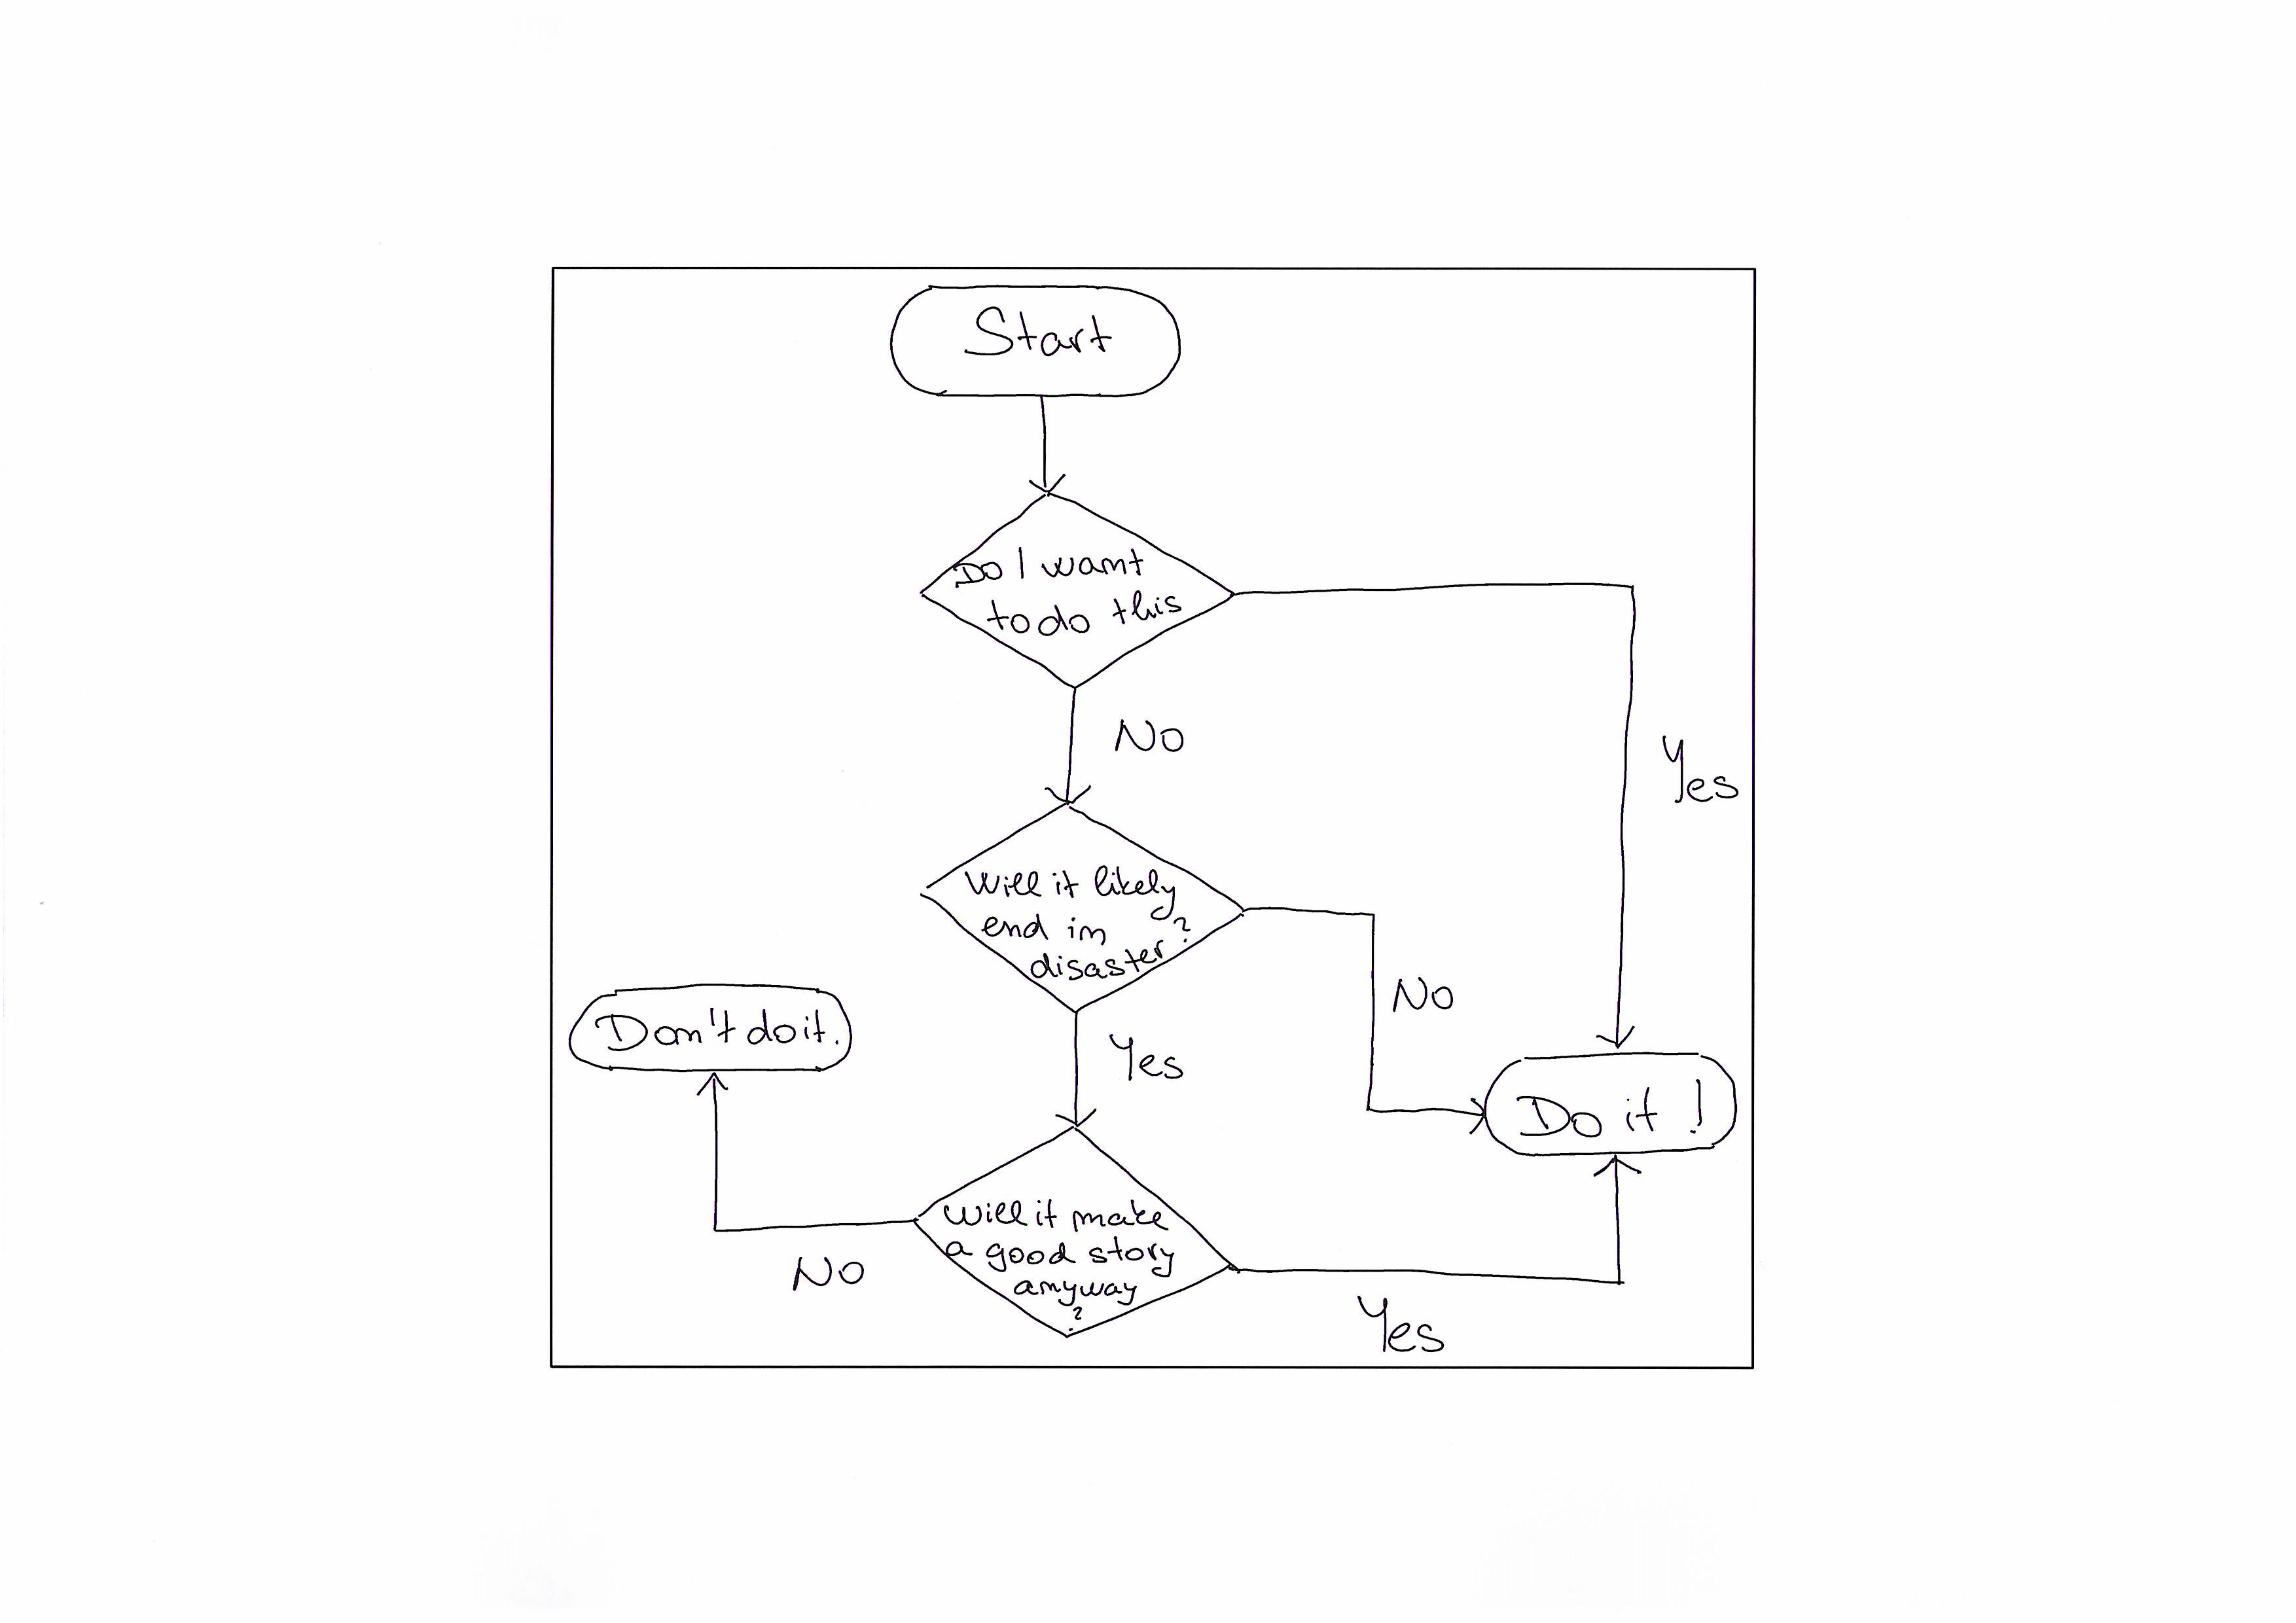 Start
Do I want
to do this
No
Yes
Will it likely
end in
disaster?
No
Yes
Don't do it.
Do it!
Will it make
a good story
anyway
?
No
Yes